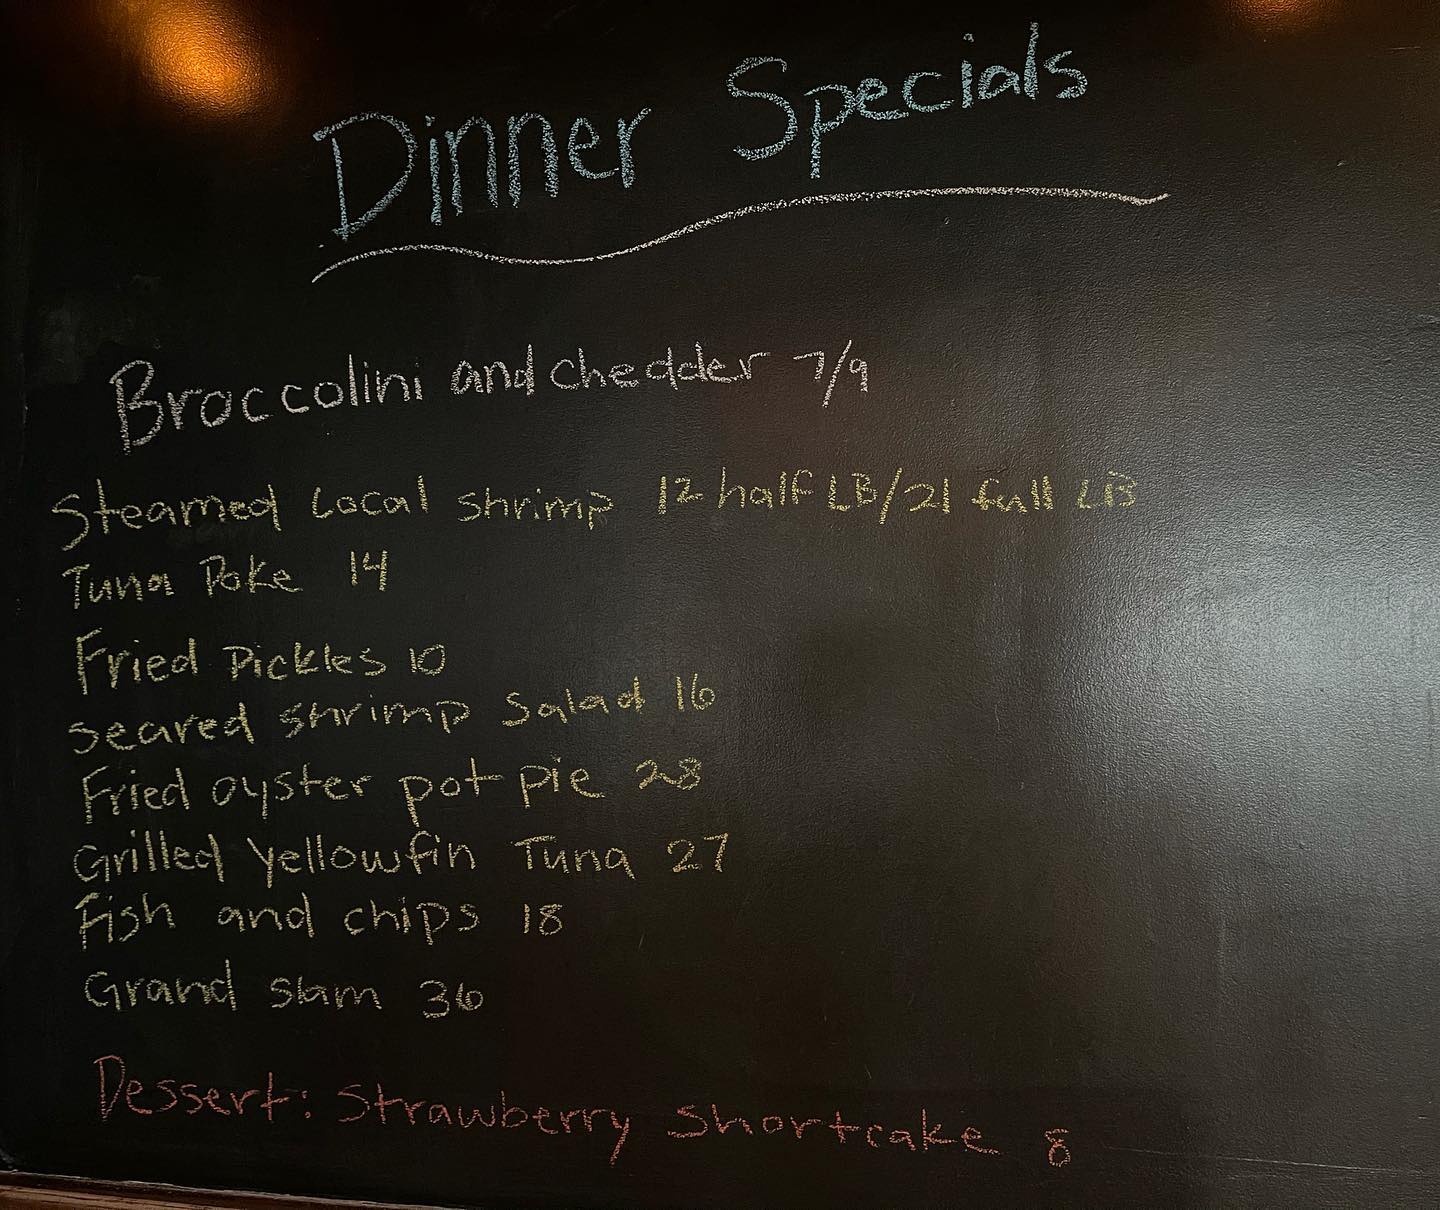 Dinner Specials
Broccolini and chedder 7/9
Steamed Local shrimp 12 half LB/21 full LB
Tuna Poke 14
Fried Pickles 10
seared shrimp Salad 16
Fried oyster pot pie 28
Grilled Yellowfin Tuna 27
Fish and chips 18
Grand slam 36
Dessert: Strawberry Shortcake 8